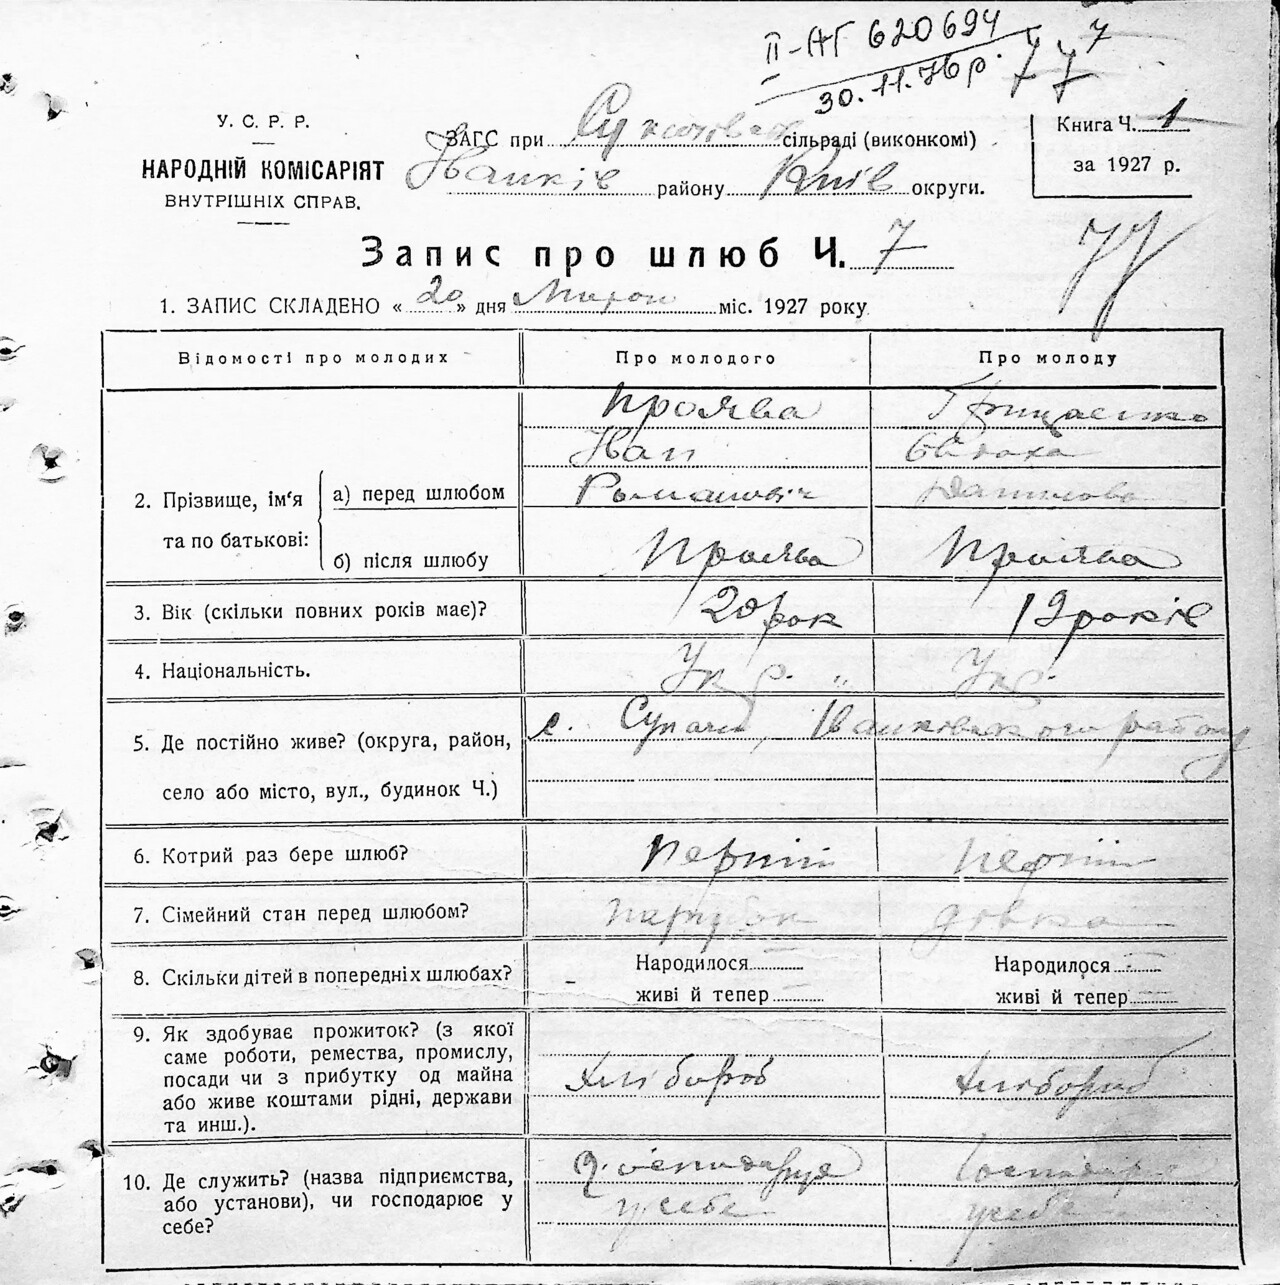 ІІ-АГ 620694
30.11.76р. 7 7 7
У. С. Р. Р.
НАРОДНІЙ КОМІСАРІЯТ
ВНУТРІШНІХ СПРАВ.
ЗАГС при сільраді (виконкомі)
Іванків району Київ округи.
Книга Ч. 1
за 1927 р.
Запис про шлюб Ч. 7
77
1. ЗАПИС СКЛАДЕНО «20» дня міс. 1927 року
Відомості про молодих Про молодого Про молоду
2. Прізвище, ім‘я та по батькові:
а) перед шлюбом
Проява Грищенко
Іван Євдоха
Романович Данилова
б) після шлюбу Проява Проява
3. Вік (скільки повних років має)? 20 рок 19 років
4. Національність. Укр. „ Укр.
5. Де постійно живе? (округа, район,
село або місто, вул., будинок Ч.)
с. Іванковского району
6. Котрий раз бере шлюб? перший перший
7. Сімейний стан перед шлюбом? парубок дівка
8. Скільки дітей в попередніх шлюбах? Народилося Народилося -
живі й тепер живі й тепер
9. Як здобуває прожиток? (з якої
саме роботи, ремества, промислу,
посади чи з прибутку од майна
або живе коштами рідні, держави
та инш.).
Хлібороб Хлібороб
10. Де служить? (назва підприємства,
або установи), чи господарює у
себе?
господарює господарює
у себе у себе